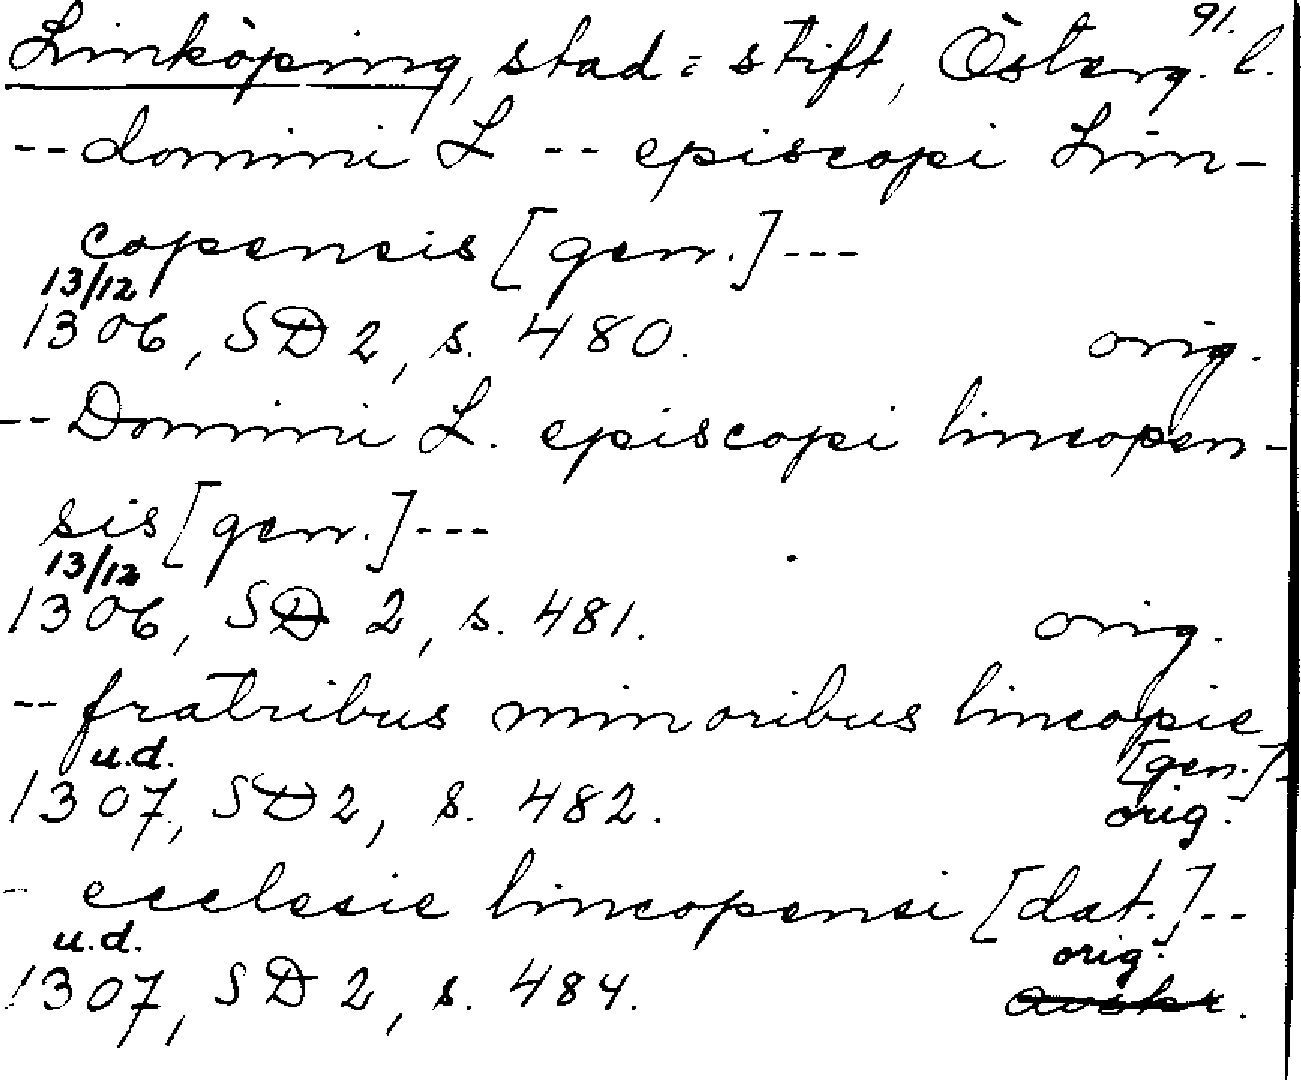 91.
Linköping, stad = stift, Österg. l.
-- domini L -- episcopi Lin-
copensis [gen.] ---
13/12
1306, SD 2, s. 480. orig.
-- Domini L. episcopi lincopen-
sis [gen.] ---
13/12
1306, SD 2, s. 481. orig.
-- fratribus minoribus lincopie
u.d. [gen.] -
1307, SD 2, s. 482. orig.
- ecclesie lincopensi [dat.] --
u.d. orig.
1307, SD 2, s. 484. avskr.